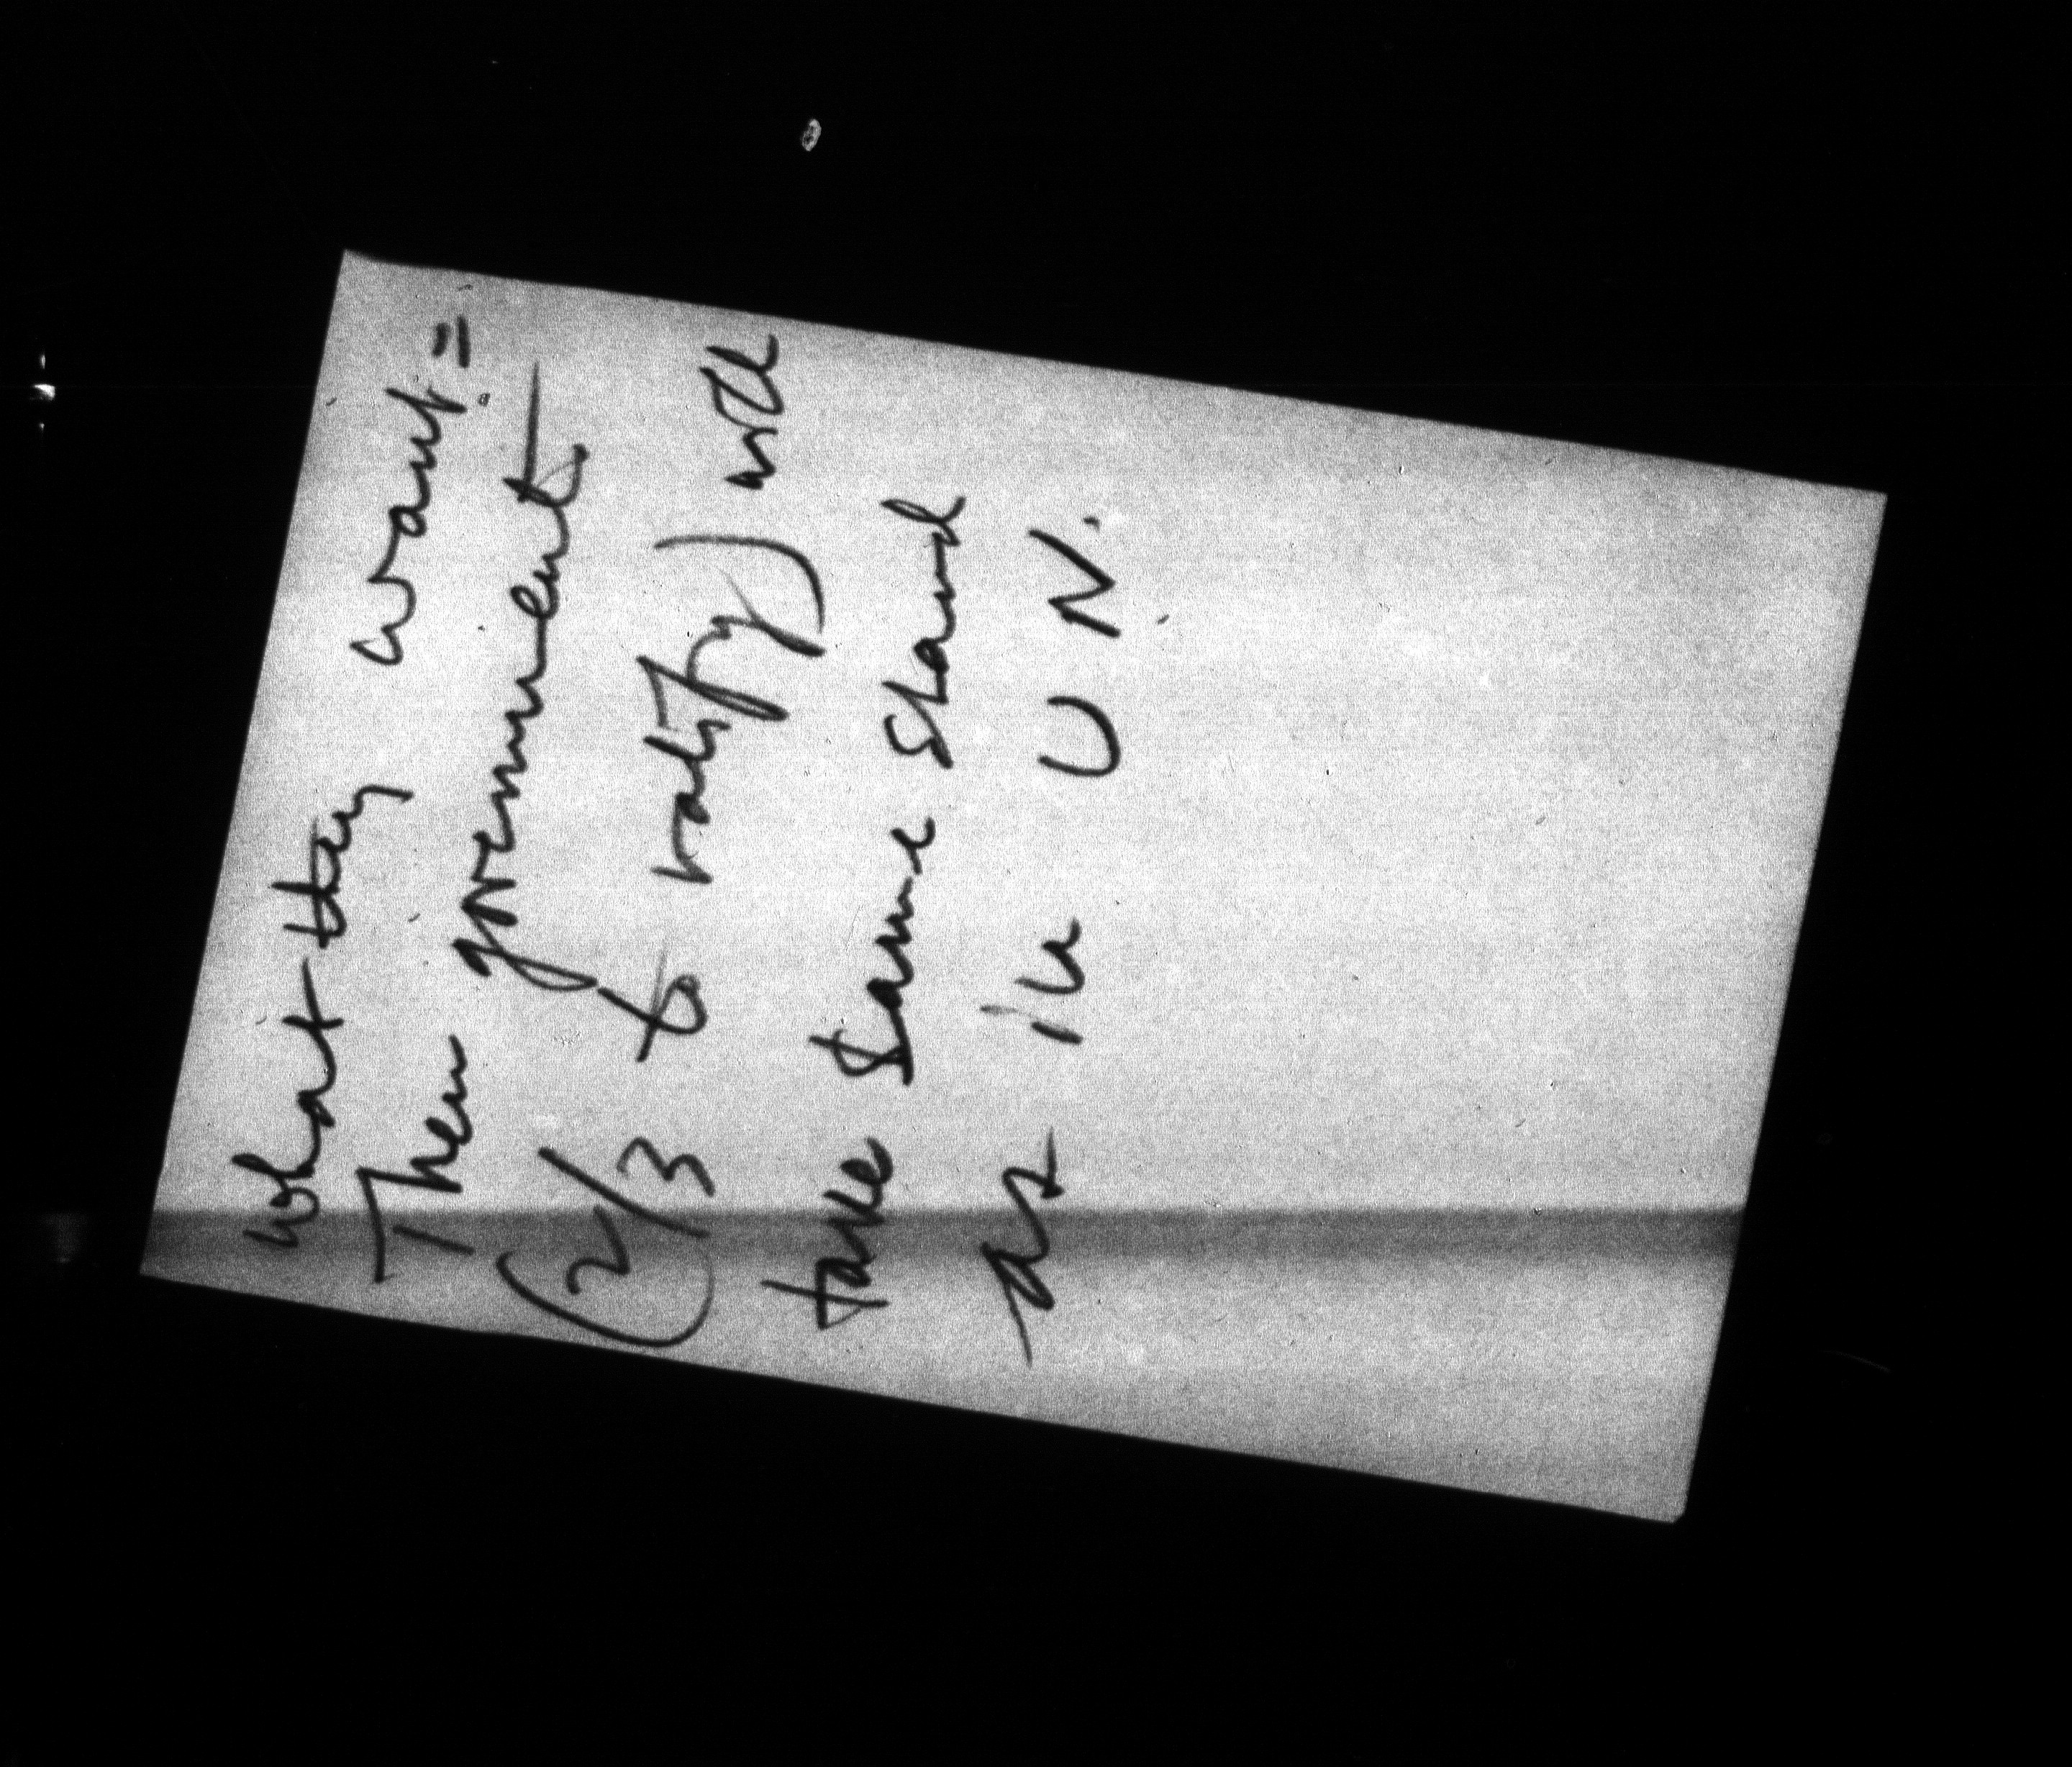 What they want =
Then governments
(2/3 to ratify) will
take same stand
as in U N.